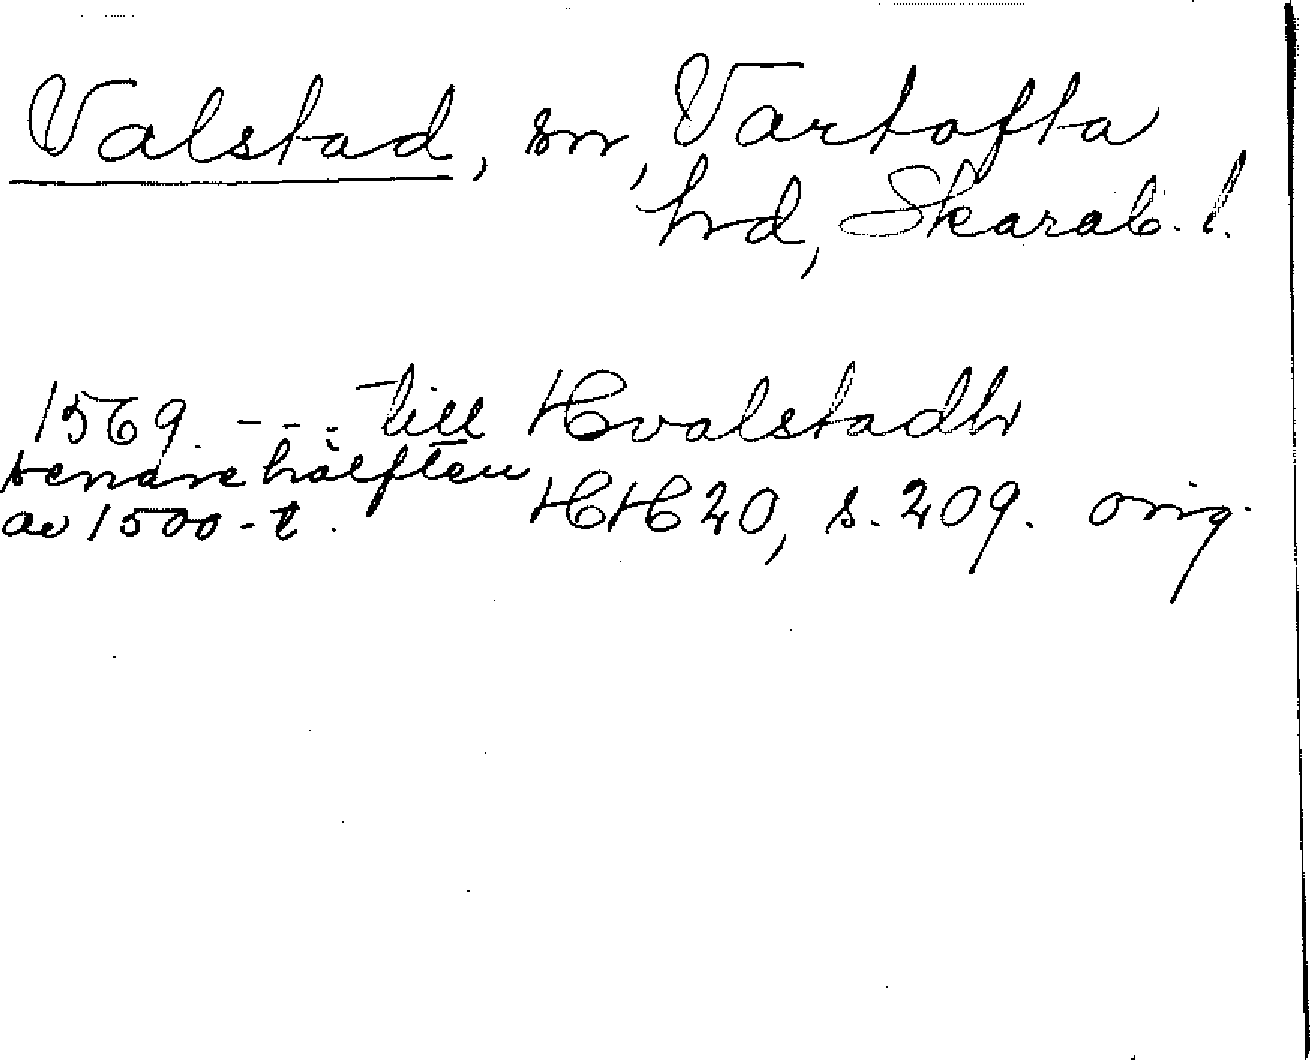 Valstad, sn, Vartofta
hd, Skarab. l.
1569. --- till Hvalstadh
senare hälften
av 1500-t. HH 20, s. 209. orig.